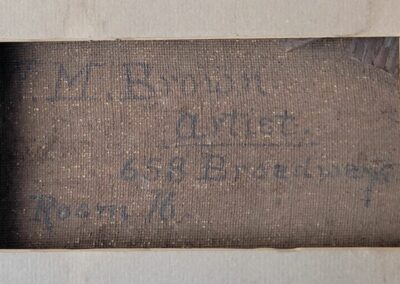 M. Brown
Artist.
658 Broadway
Room 76.